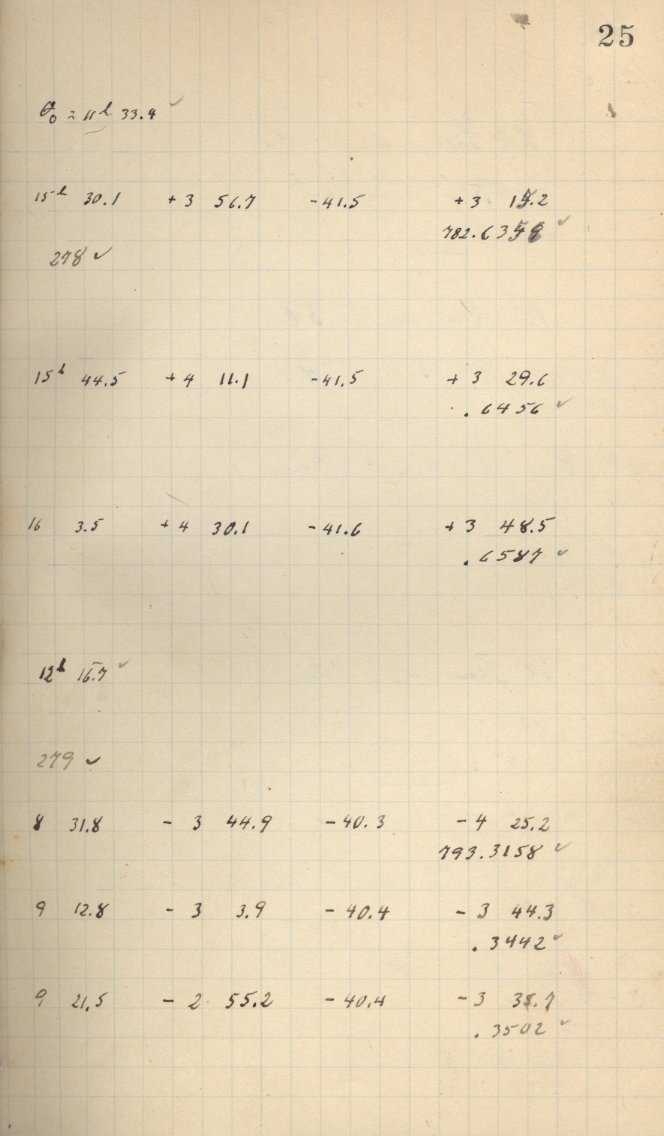 25
θ₀ = 11ʰ 33.4 ✓
15ʰ 30.1 +3 56.7 -41.5 +3 15.2
782.6356 ✓
278 ✓
15ʰ 44.5 +4 11.1 -41.5 +3 29.6
.6456 ✓
16 3.5 +4 30.1 -41.6 +3 48.5
.6587 ✓
12ʰ 16.7 ✓
279 ✓
8 31.8 - 3 44.9 -40.3 - 4 25.2
793.3158 ✓
9 12.8 - 3 3.9 -40.4 - 3 44.3
.3442 ✓
9 21.5 - 2 55.2 -40.4 - 3 35.7
.3502 ✓